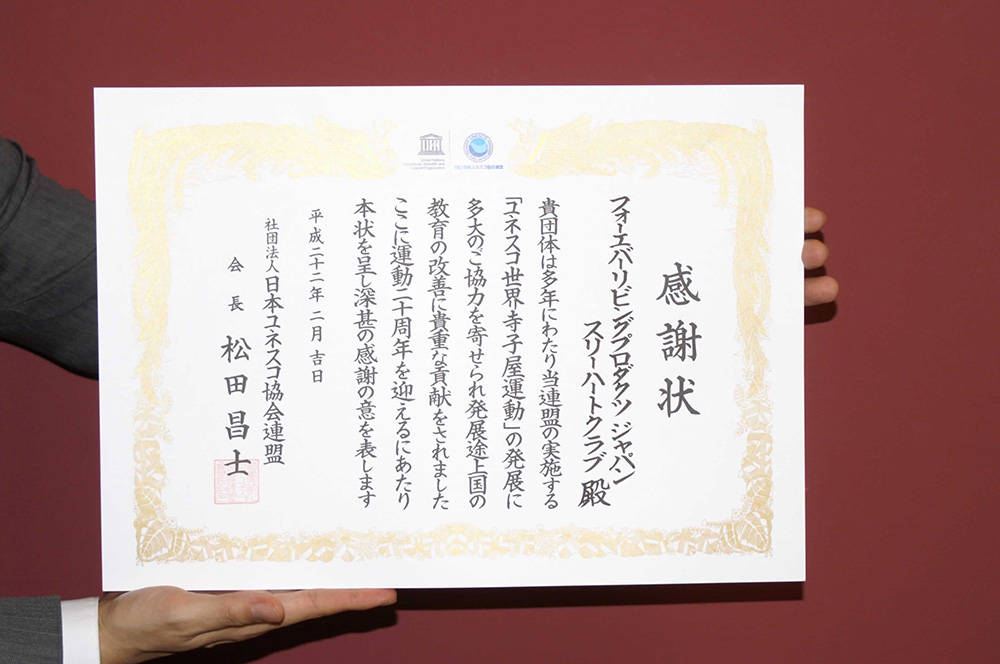 感謝状
フォーエバーリビングプロダクツ ジャパン
スリーハートクラブ 殿
貴団体は多年にわたり当連盟の実施する
「ユネスコ世界寺子屋運動」の発展に
多大のご協力を寄せられ発展途上国の
教育の改善に貴重な貢献をされました
ここに運動二十周年を迎えるにあたり
本状を呈し深甚の感謝の意を表します
平成二十二年 二月 吉日
社団法人 日本ユネスコ協会連盟
会長 松田昌士